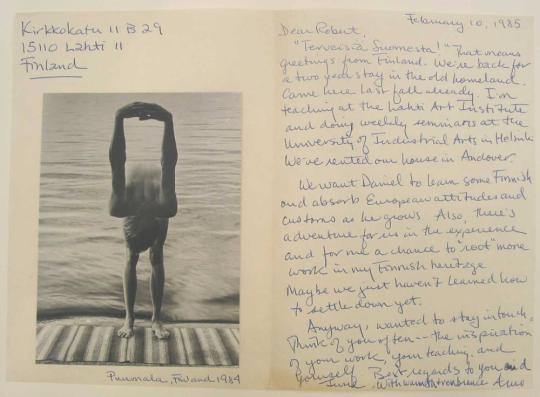 Kirkkokatu 11 B 29
15110 Lahti 11
Finland
Puumala, Finland 1984
February 10, 1985
Dear Robert,
"Terveisiä Suomesta!" That means
greetings from Finland. We're back for
a two year stay in the old homeland.
Came here last fall already. I'm
teaching at the Lahti Art Institute
and doing weekly seminars at the
University of Industrial Arts in Helsinki
We've rented our house in Andover.
We want Daniel to learn some Finnish
and absorb European attitudes and
customs as he grows Also, there's
adventure for us in the experience
and for me a chance to "root" more
work in my Finnish heritage
Maybe we just haven't learned how
to settle down yet.
Anyway, wanted to stay in touch.
Think of you often -- the inspiration
of your work, your teaching, and
yourself. Best regards to you and
With warm